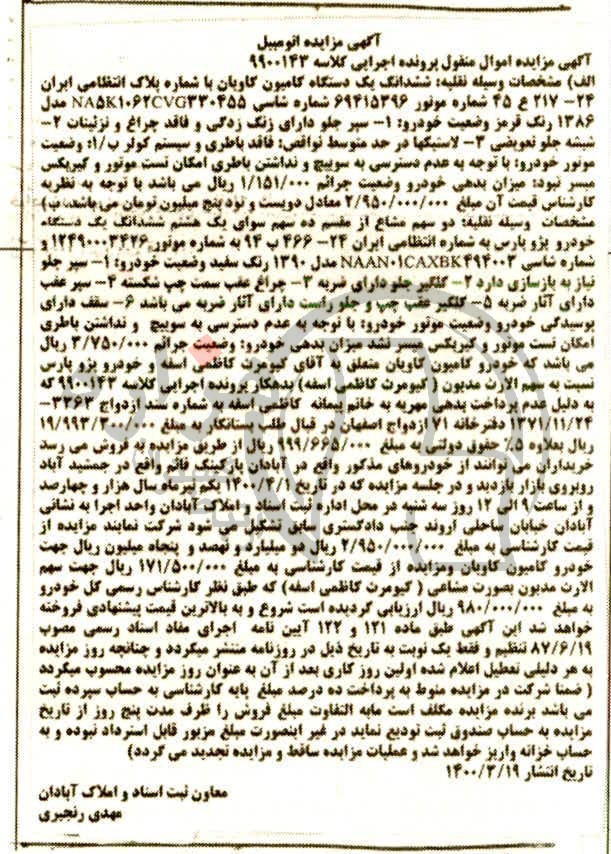 آگهی مزایده اتومبیل
آگهی مزایده اموال منقول پرونده اجرایی کلاسه ۹۹۰۰۱۴۳
الف) مشخصات وسیله نقلیه: ششدانگ یک دستگاه کامیون کاویان با شماره پلاک انتظامی ایران
۲۴- ۲۱۷ ع ۴۵ شماره موتور ۶۹۴۱۵۳۹۶ شماره شاسی NA5K1062CVG330455 مدل
۱۳۸۶ رنگ قرمز وضعیت خودرو: ۱- سپر جلو دارای زنگ زدگی و فاقد چراغ و تزئینات ۲-
شیشه جلو تعویضی ۳- لاستیکها در حد متوسط نواقص: فاقد باطری و سیستم کولر ب/ا: وضعیت
موتور خودرو: با توجه به عدم دسترسی به سوییچ و نداشتن باطری امکان تست موتور و گیربکس
میسر نبود: میزان بدهی خودرو وضعیت جرائم ۱/۱۵۱/۰۰۰ ریال می باشد با توجه به نظریه
کارشناس قیمت آن مبلغ ۲/۹۵۰/۰۰۰/۰۰۰ معادل دویست و نود پنج میلیون تومان می باشد. ب)
مشخصات وسیله نقلیه: دو سهم مشاع از مقسم ده سهم سوای یک هشتم ششدانگ یک دستگاه
خودرو پژو پارس به شماره انتظامی ایران ۲۴- ۴۶۶ ب ۹۴ به شماره موتور ۱۲۴۹۰۰۰۳۴۲۶ و
شماره شاسی NAAN01CAXBK494003 مدل ۱۳۹۰ رنگ سفید وضعیت خودرو: ۱- سپر جلو
نیاز به بازسازی دارد ۲- گلگیر جلو دارای ضربه ۳- چراغ عقب سمت چپ شکسته ۴- سپر عقب
دارای آثار ضربه ۵- گلگیر عقب چپ و جلو راست دارای آثار ضربه می باشد ۶- سقف دارای
پوسیدگی خودرو وضعیت موتور خودرو: با توجه به عدم دسترسی به سوییچ و نداشتن باطری
امکان تست موتور و گیربکس میسر نشد میزان بدهی خودرو: وضعیت جرائم ۳/۷۵۰/۰۰۰ ریال
می باشد که خودرو کامیون کاویان متعلق به آقای کیومرث کاظمی اسفه و خودرو پژو پارس
نسبت به سهم الارث مدیون ( کیومرث کاظمی اسفه) بدهکار پرونده اجرایی کلاسه ۹۹۰۰۱۴۳ که
به دلیل عدم پرداخت بدهی مهریه به خانم پیمانه کاظمی اسفه به شماره سند ازدواج ۳۳۶۳-
۱۳۷۱/۱۱/۲۴ دفترخانه ۷۱ ازدواج اصفهان در قبال طلب بستانکار به مبلغ ۱۹/۹۹۳/۳۰۰/۰۰۰
ریال بعلاوه ۵٪ حقوق دولتی به مبلغ ۹۹۹/۶۶۵/۰۰۰ ریال از طریق مزایده به فروش می رسد
خریداران می توانند از خودروهای مذکور واقع در آبادان پارکینگ قائم واقع در جمشید آباد
روبروی بازار بازدید و در جلسه مزایده که در تاریخ ۱۴۰۰/۴/۱ یکم تیرماه سال هزار و چهارصد
و از ساعت ۹ الی ۱۲ روز سه شنبه در محل اداره ثبت اسناد و املاک آبادان واحد اجرا به نشانی
آبادان خیابان ساحلی اروند جنب دادگستری سابق تشکیل می شود شرکت نمایند مزایده از
قیمت کارشناسی به مبلغ ۲/۹۵۰/۰۰۰/۰۰۰ ریال دو میلیارد و نهصد و پنجاه میلیون ریال جهت
خودرو کامیون کاویان ومزایده از قیمت کارشناسی به مبلغ ۱۷۱/۵۰۰/۰۰۰ ریال جهت سهم
الارث مدیون بصورت مشاعی ( کیومرث کاظمی اسفه) که طبق نظر کارشناس رسمی کل خودرو
به مبلغ ۹۸۰/۰۰۰/۰۰۰ ریال ارزیابی گردیده است شروع و به بالاترین قیمت پیشنهادی فروخته
خواهد شد این آگهی طبق ماده ۱۲۱ و ۱۲۲ آیین نامه اجرای مفاد اسناد رسمی مصوب
۸۷/۶/۱۹ تنظیم و فقط یک نوبت به تاریخ ذیل در روزنامه منتشر میگردد و چنانچه روز مزایده
به هر دلیلی تعطیل اعلام شده اولین روز کاری بعد از آن به عنوان روز مزایده محسوب میگردد
( ضمنا شرکت در مزایده منوط به پرداخت ده درصد مبلغ پایه کارشناسی به حساب سپرده ثبت
می باشد برنده مزایده مکلف است مابه التفاوت مبلغ فروش را ظرف مدت پنج روز از تاریخ
مزایده به حساب صندوق ثبت تودیع نماید در غیر اینصورت مبلغ مزبور قابل استرداد نبوده و به
حساب خزانه واریز خواهد شد و عملیات مزایده ساقط و مزایده تجدید می گردد)
تاریخ انتشار ۱۴۰۰/۳/۱۹
معاون ثبت اسناد و املاک آبادان
مهدی رنجبری